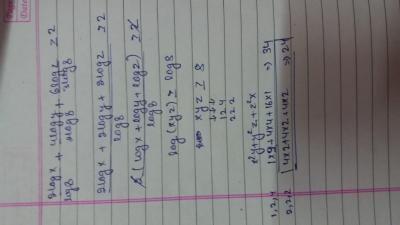 2logx/log8 + 4logy/2log8 + 6log2/3log8 ≥ 2
2logx + 2logy + 2logz / log8 ≥ 2
2(logx + logy + logz) / log8 ≥ 2
log(xyz) ≥ log8
xyz ≥ 8
↓↓↓
1 2 4
2 2 2
x²y + y²z + z²x
1, 2, 4 1×2 + 4×4 + 16×1 ⇒ 34
2, 2, 2 4×2 + 4×2 + 4×2 ⇒ 24